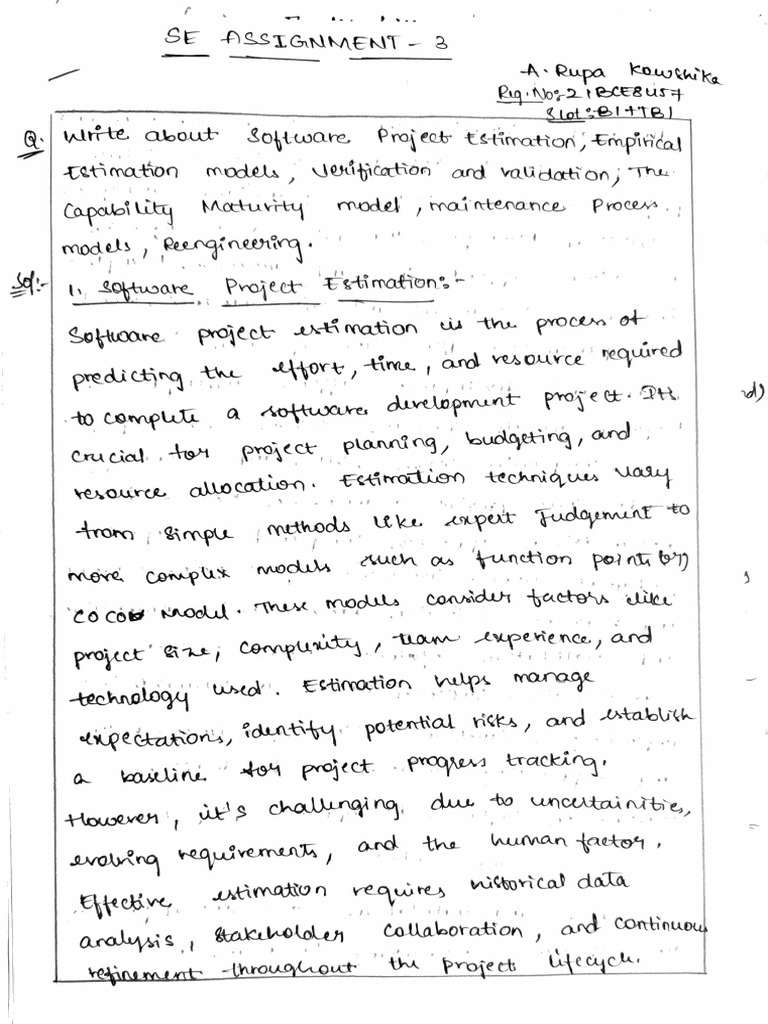 SE ASSIGNMENT - 3
A. Rupa Kowshika
Reg. No:- 21BCE8457
Slot:- B1+TB1
Q. Write about Software Project Estimation, Empirical
Estimation models, Verification and validation, The
Capability Maturity model, maintenance Process
models, Reengineering.
Sol:- 1. Software Project Estimation:-
Software project estimation is the process of
predicting the effort, time, and resource required
to complete a software development project. Its
crucial for project planning, budgeting, and
resource allocation. Estimation techniques vary
from simple methods like expert Judgement to
more complex models such as function point (or)
COCO Model. These models consider factors like
project size, complexity, team experience, and
technology used. Estimation helps manage
expectations, identify potential risks, and establish
a baseline for project progress tracking.
However, it's challenging due to uncertainities,
evolving requirements, and the human factor.
Effective estimation requires historical data
analysis, stakeholder collaboration, and continuous
refinement throughout the project lifecycle.